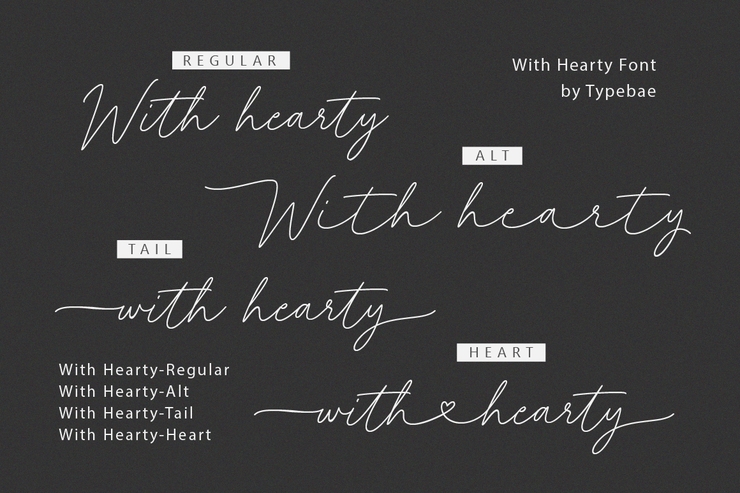 REGULAR
With Hearty Font
by Typebae
With hearty
ALT
With hearty
TAIL
with hearty
HEART
With Hearty-Regular
With Hearty-Alt
With Hearty-Tail
With Hearty-Heart
with hearty